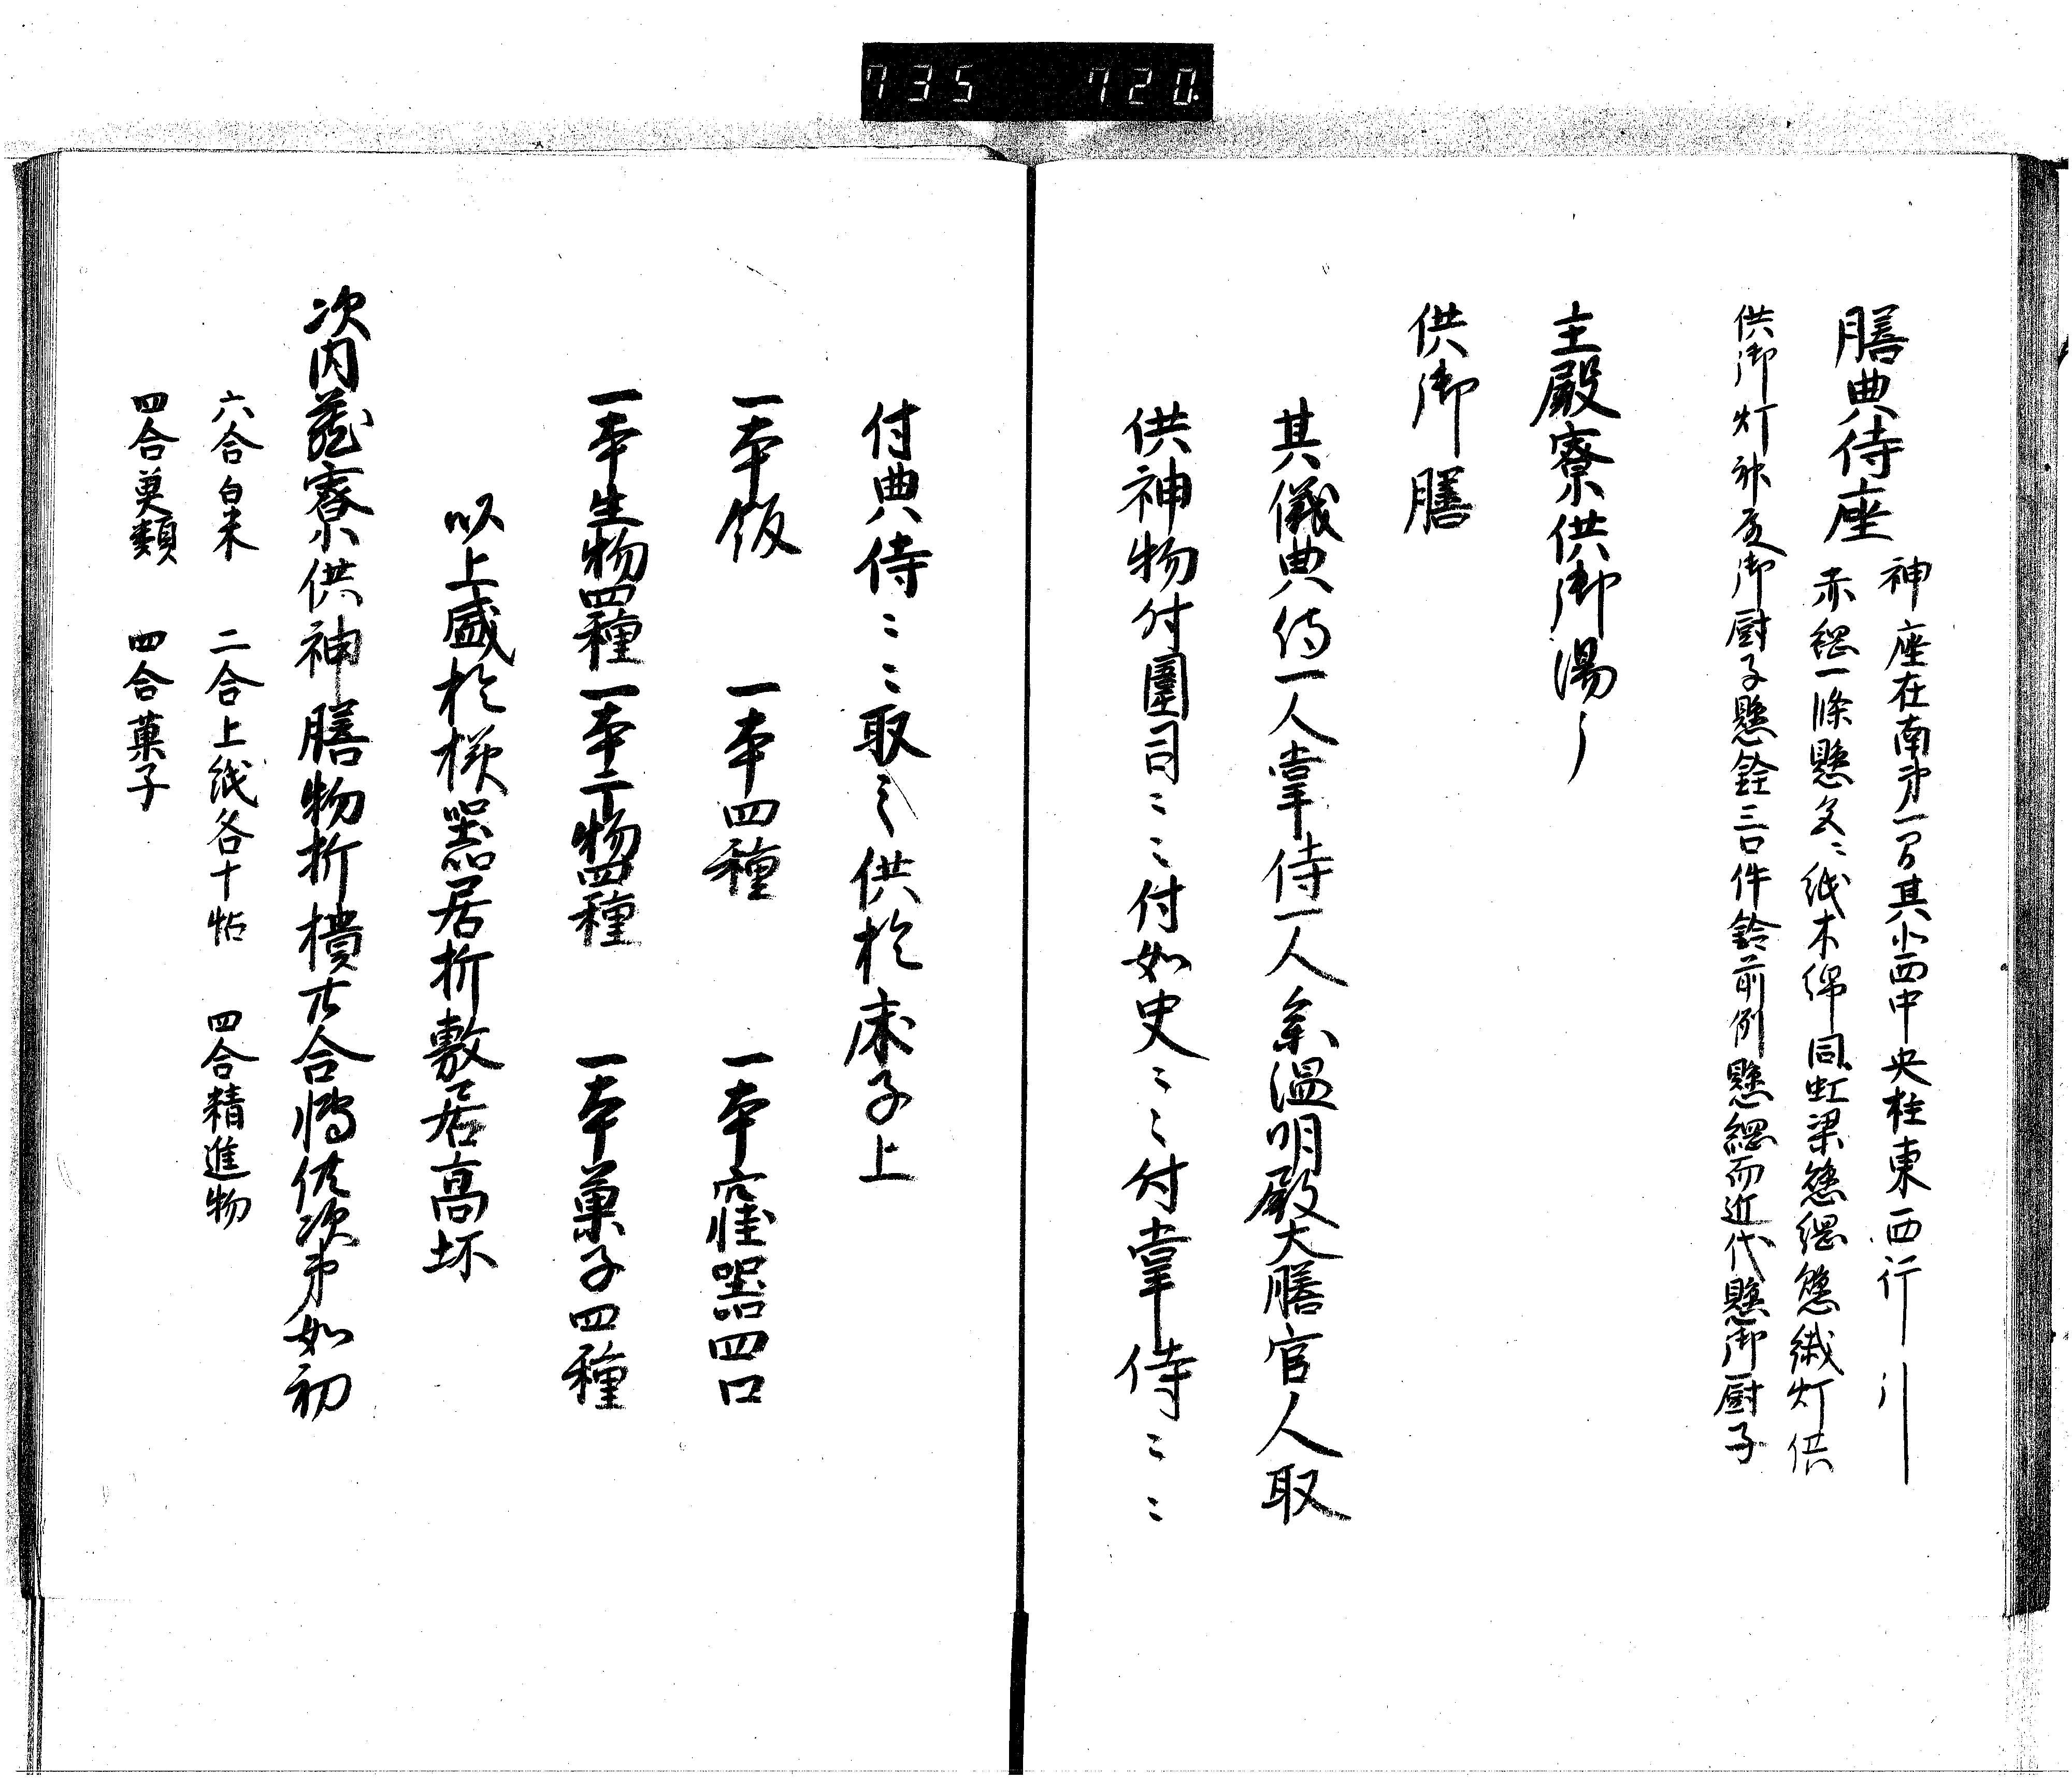 735 720
膳典侍座
神座在南第一間其北面中央柱東西行
赤綱一條懸之紙木綿同虹梁懸綱懸織灯供
供御灯神反御厨子懸鈴三口件鈴前例懸綱而近代懸御厨子
主殿寮供御湯
供御膳
其儀典侍一人掌侍一人参温明殿大膳官人取
供神物付闈司ミミ付女史ミミ付掌侍ミミ
付典侍ミミ取之供於床子上
一本飯 一本四種 一本窪器四口
一本生物四種 一本干物四種 一本菓子四種
以上盛於様器居折敷居高坏
次内蔵寮供神膳物折櫃廿合伝供次第如初
六合白米 二合上紙各十帖 四合精進物
四合魚類 四合菓子